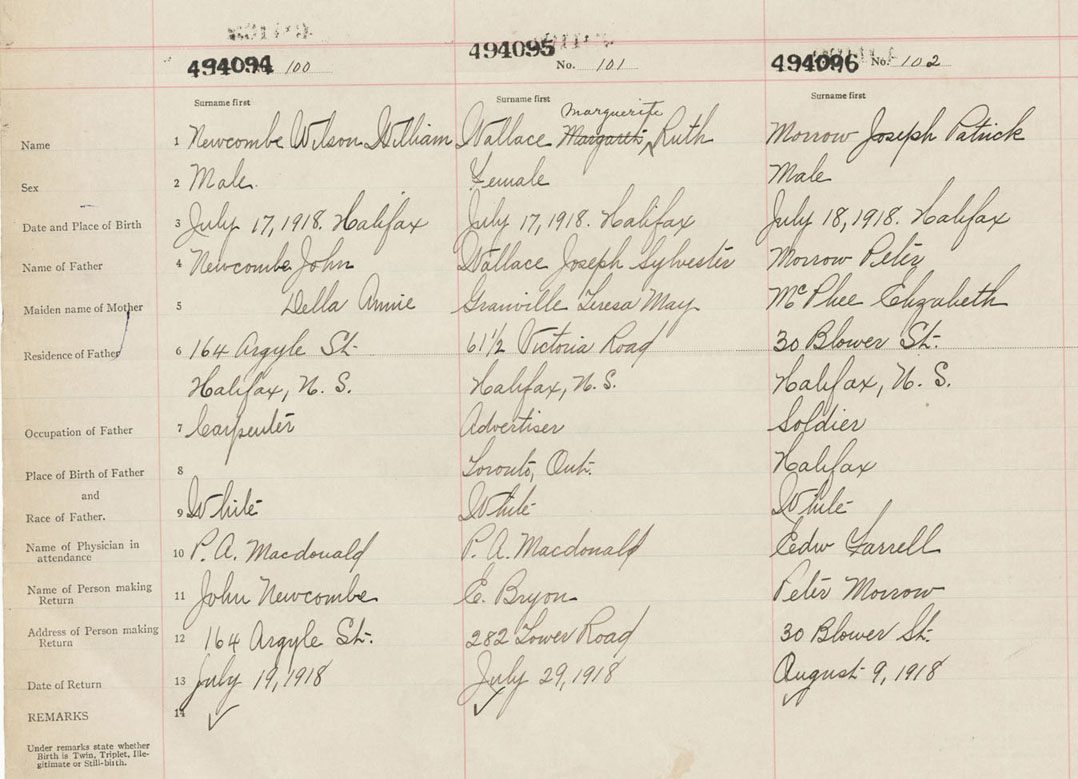 494094 100
494095 No. 101
494096 No. 102
Surname first Surname first Surname first
Marguerite
Name 1 Newcombe Wilson William Wallace Margarth, Ruth Morrow Joseph Patrick
Sex 2 Male. Female Male
Date and Place of Birth 3 July 17, 1918. Halifax July 17, 1918. Halifax July 18, 1918. Halifax
Name of Father 4 Newcombe John Wallace Joseph Sylvester Morrow Peter
Maiden name of Mother 5 Della Annie Granville Teresa May McPhee Elizabeth
Residence of Father 6 164 Argyle St. 61 1/2 Victoria Road 30 Blower St.
Halifax, N. S. Halifax, N. S. Halifax, N. S.
Occupation of Father 7 Carpenter Advertiser Soldier
Place of Birth of Father 8 Toronto, Ont. Halifax
and
Race of Father. 9 White White White
Name of Physician in
attendance 10 P. A. Macdonald P. A. Macdonald Edw Farrell
Name of Person making
Return 11 John Newcombe E. Bryon Peter Morrow
Address of Person making
Return 12 164 Argyle St. 282 Tower Road 30 Blower St.
Date of Return 13 July 19, 1918 July 29, 1918 August 9, 1918
REMARKS 14
Under remarks state whether
Birth is Twin, Triplet, Ille-
gitimate or Still-birth.